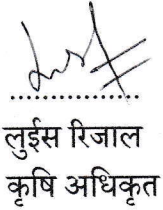 लुईस रिजाल
कृषि अधिकृत